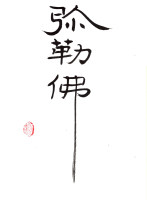 弥勒佛